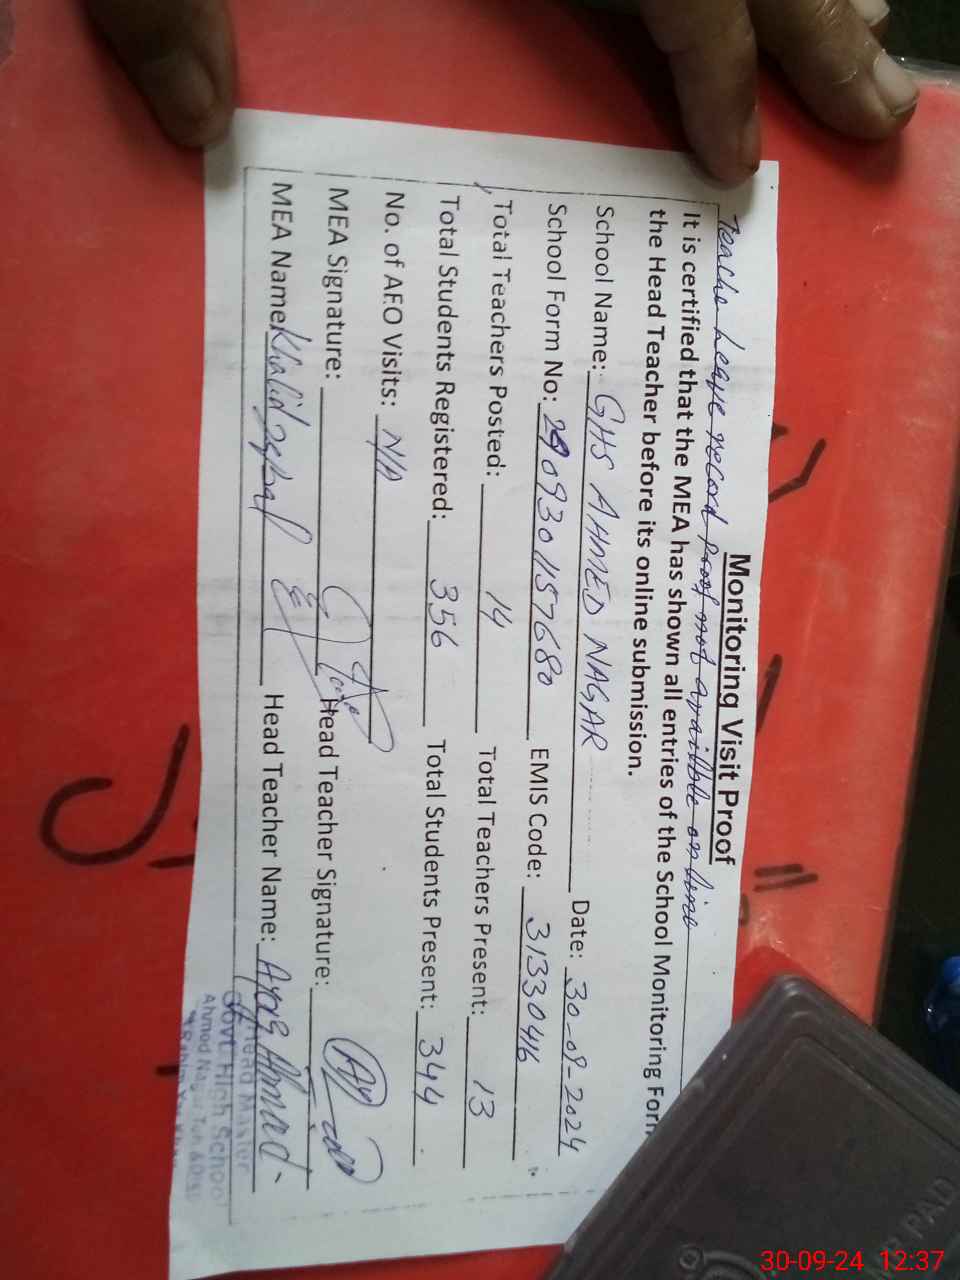 Monitoring Visit Proof
Teache leave record proof not availble on line
It is certified that the MEA has shown all entries of the School Monitoring Form
the Head Teacher before its online submission.
School Name: GHS AHMED NAGAR Date: 30-09-2024
School Form No: 2909301157680 EMIS Code: 31330416
Total Teachers Posted: 14 Total Teachers Present: 13
Total Students Registered: 356 Total Students Present: 344
No. of AEO Visits: N/A
MEA Signature: Head Teacher Signature:
MEA Name Khalid Iqbal Head Teacher Name: Ayaz Ahmad
Head Master
Govt. High School
Ahmad Nagar Teh &
PAD
30-09-24 12:37